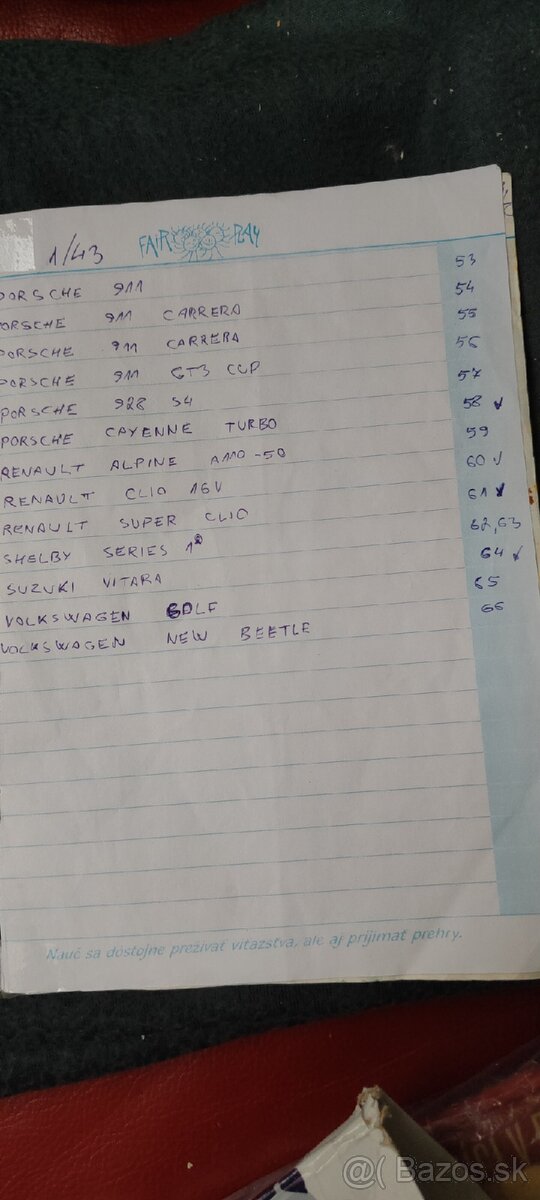 1/43 FAIR PLAY
PORSCHE 911 53
PORSCHE 911 CARRERA 54
PORSCHE 911 CARRERA 55
PORSCHE 911 GT3 CUP 56
PORSCHE 928 S4 57
PORSCHE CAYENNE TURBO 58 ✓
RENAULT ALPINE A110-50 59
RENAULT CLIO 16V 60 ✓
RENAULT SUPER CLIO 61 ✓
SHELBY SERIES 1 62,63
SUZUKI VITARA 64 ✓
VOLKSWAGEN GOLF 65
VOLKSWAGEN NEW BEETLE 66
Nauč sa dôstojne prežívať víťazstva, ale aj prijímať prehry.
@( Bazos.sk